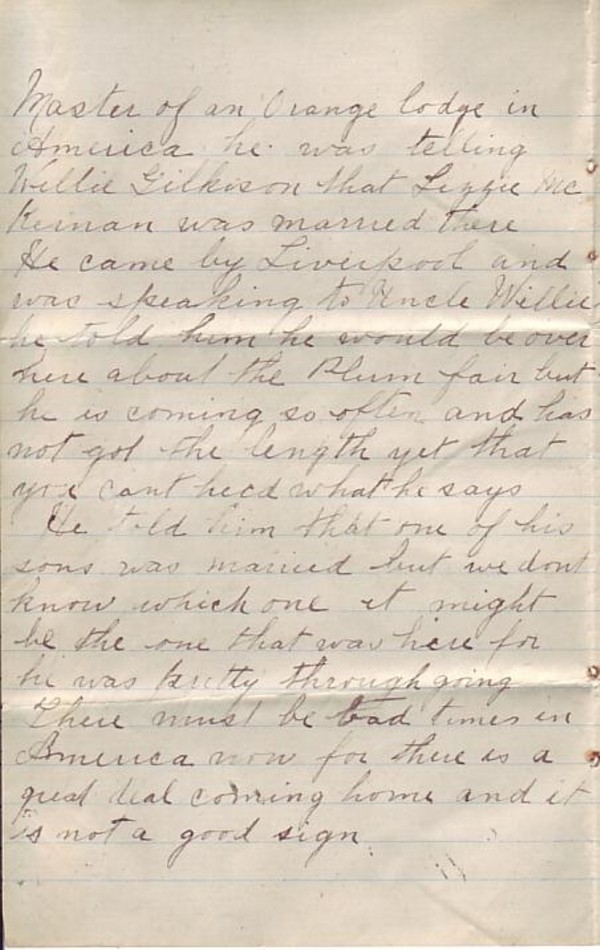 Master of an Orange lodge in
America he was telling
Willie Gilkison that Lizzie Mc
Kernan was married there
He came by Liverpool and
was speaking to Uncle Willie
he told him he would be over
here about the Plum fair but
he is coming so often and has
not got the length yet that
you cant heed what he says
He told him that one of his
sons was married but we dont
know which one it might
be the one that was here for
he was pretty through going
There must be bad times in
America now for there is a
great deal coming home and it
is not a good sign